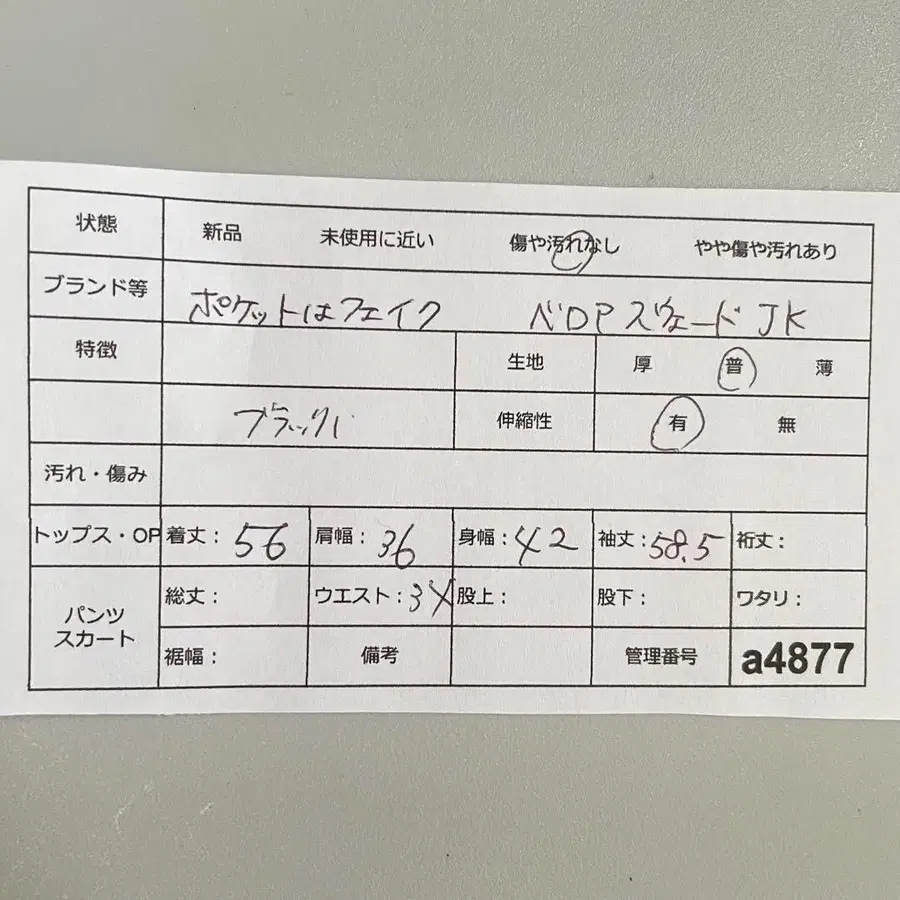 状態 新品 未使用に近い 傷や汚れなし やや傷や汚れあり
ブランド等 ポケットはフェイク スウェードJK
特徴 生地 厚 普 薄
ブラック 伸縮性 有 無
汚れ・傷み
トップス・OP 着丈: 56 肩幅: 36 身幅: 42 袖丈: 58.5 裄丈:
パンツ スカート 総丈: ウエスト: 股上: 股下: ワタリ:
裾幅: 備考 管理番号 a4877